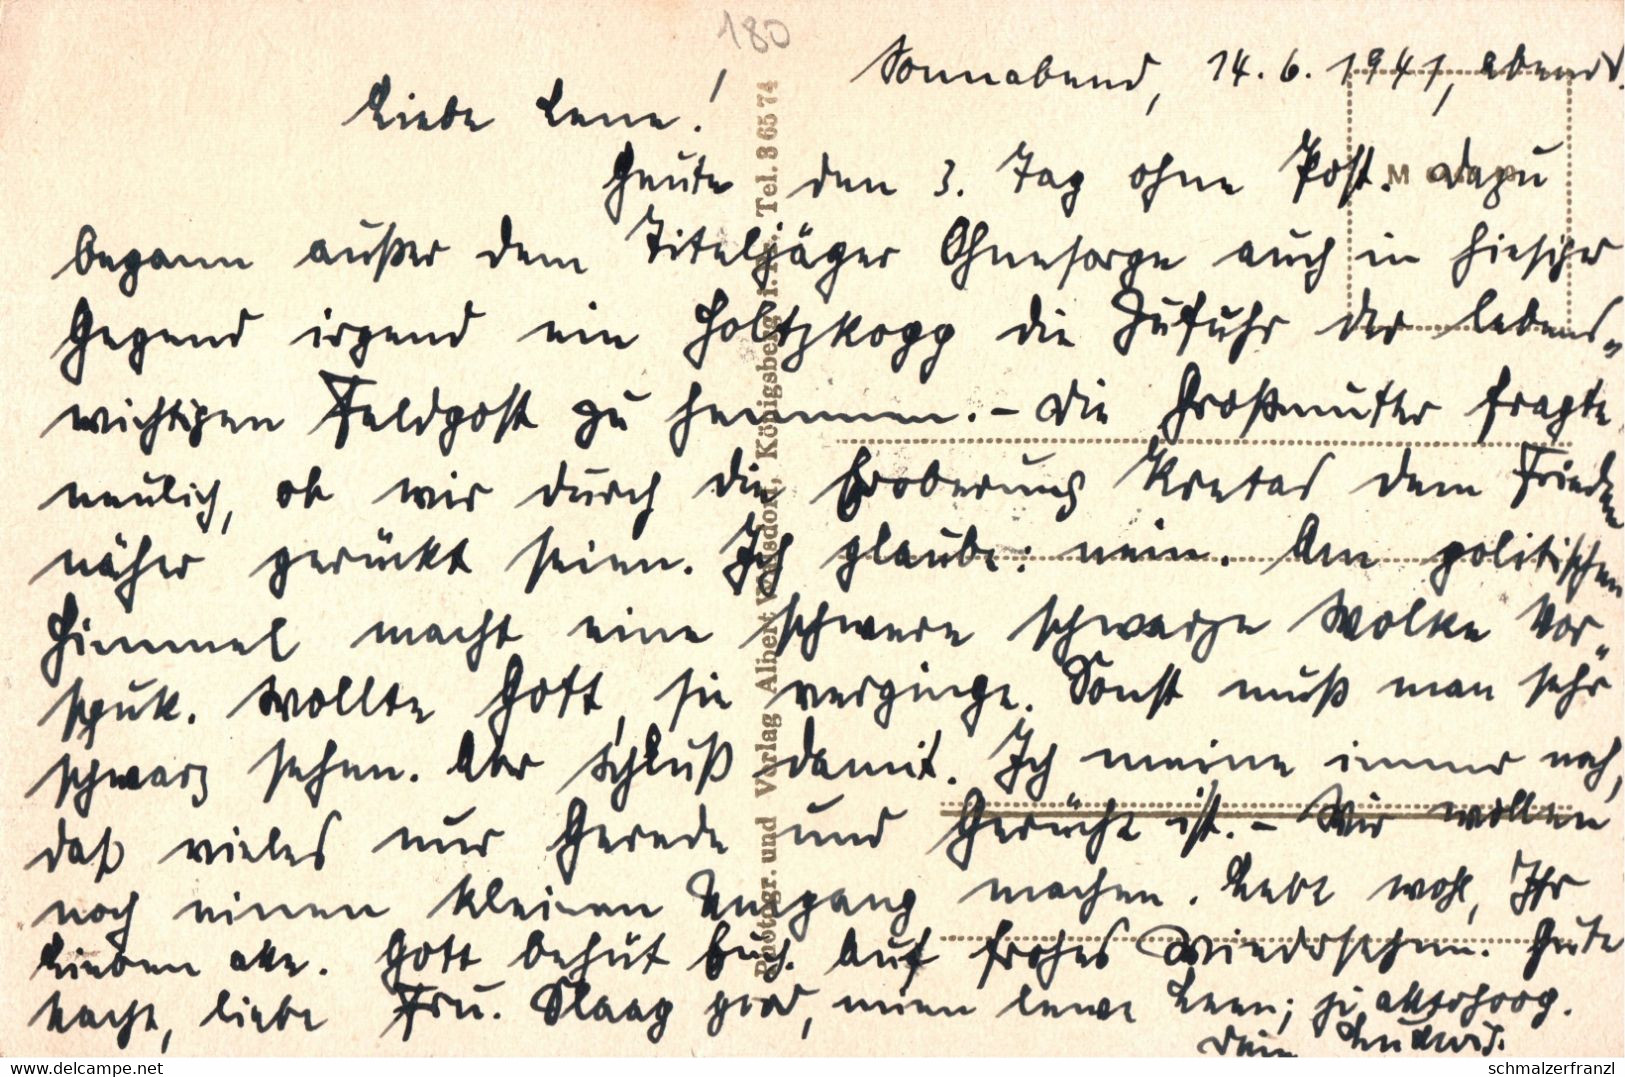 180
Sonnabend, 14.6.1941, abends.
Liebe Lene!
Heute den 3. Tag ohne Post. Dazu
begann außer dem Titeljäger Ohnesorge auch in hiesiger
Gegend irgend ein Holtzkopp die Zufuhr der lebens-
wichtigen Feldpost zu hemmen. – Die Großmutter fragte
neulich, ob wir durch die Eroberung Kretas dem Frieden
näher gerückt seien. Ich glaube: nein. Am politischen
Himmel macht eine schwere schwarze Wolke Vor-
spuk. Wollte Gott, sie verginge. Sonst muß man sehr
schwarz sehen. Aber Schluß damit. Ich meine immer noch,
daß vieles nur Gerede und Gerücht ist. – Wir wollen
noch einen kleinen Umgang machen. Lebt wohl, Ihr
Lieben alle. Gott behüt Euch. Auf frohes Wiedersehen. Gute
Nacht, liebe Fru. Slaap god, mien lewe Leen;
Dein Ludwig.
Photogr. und Verlag Albert Königsberg i. Pr., Tel. 3 65 74
schmalzerfranzl